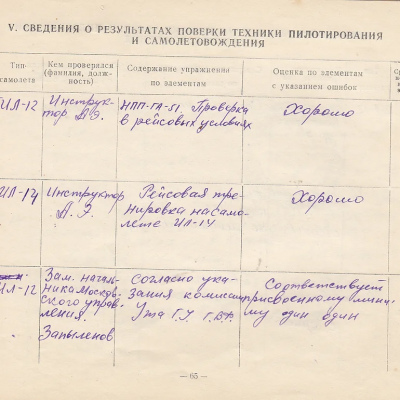 V. СВЕДЕНИЯ О РЕЗУЛЬТАТАХ ПОВЕРКИ ТЕХНИКИ ПИЛОТИРОВАНИЯ
И САМОЛЕТОВОЖДЕНИЯ
Тип
самолета
Кем проверялся
(фамилия, долж-
ность)
Содержание упражнения
по элементам
Оценка по элементам
с указанием ошибок
ИЛ-12
Инструк-
тор А.Э.
НПП-ГА-51. Проверка
в рейсовых условиях
Хорошо
ИЛ-14
Инструктор
А.Э.
Рейсовая тре-
нировка на само-
лете ИЛ-14
Хорошо
ИЛ-12
Зам. началь-
ника Москов-
ского управ-
ления.
Запыленов
Согласно ука-
зания комиссии
Соответствует
присвоенному мини-
му один один
— 65 —